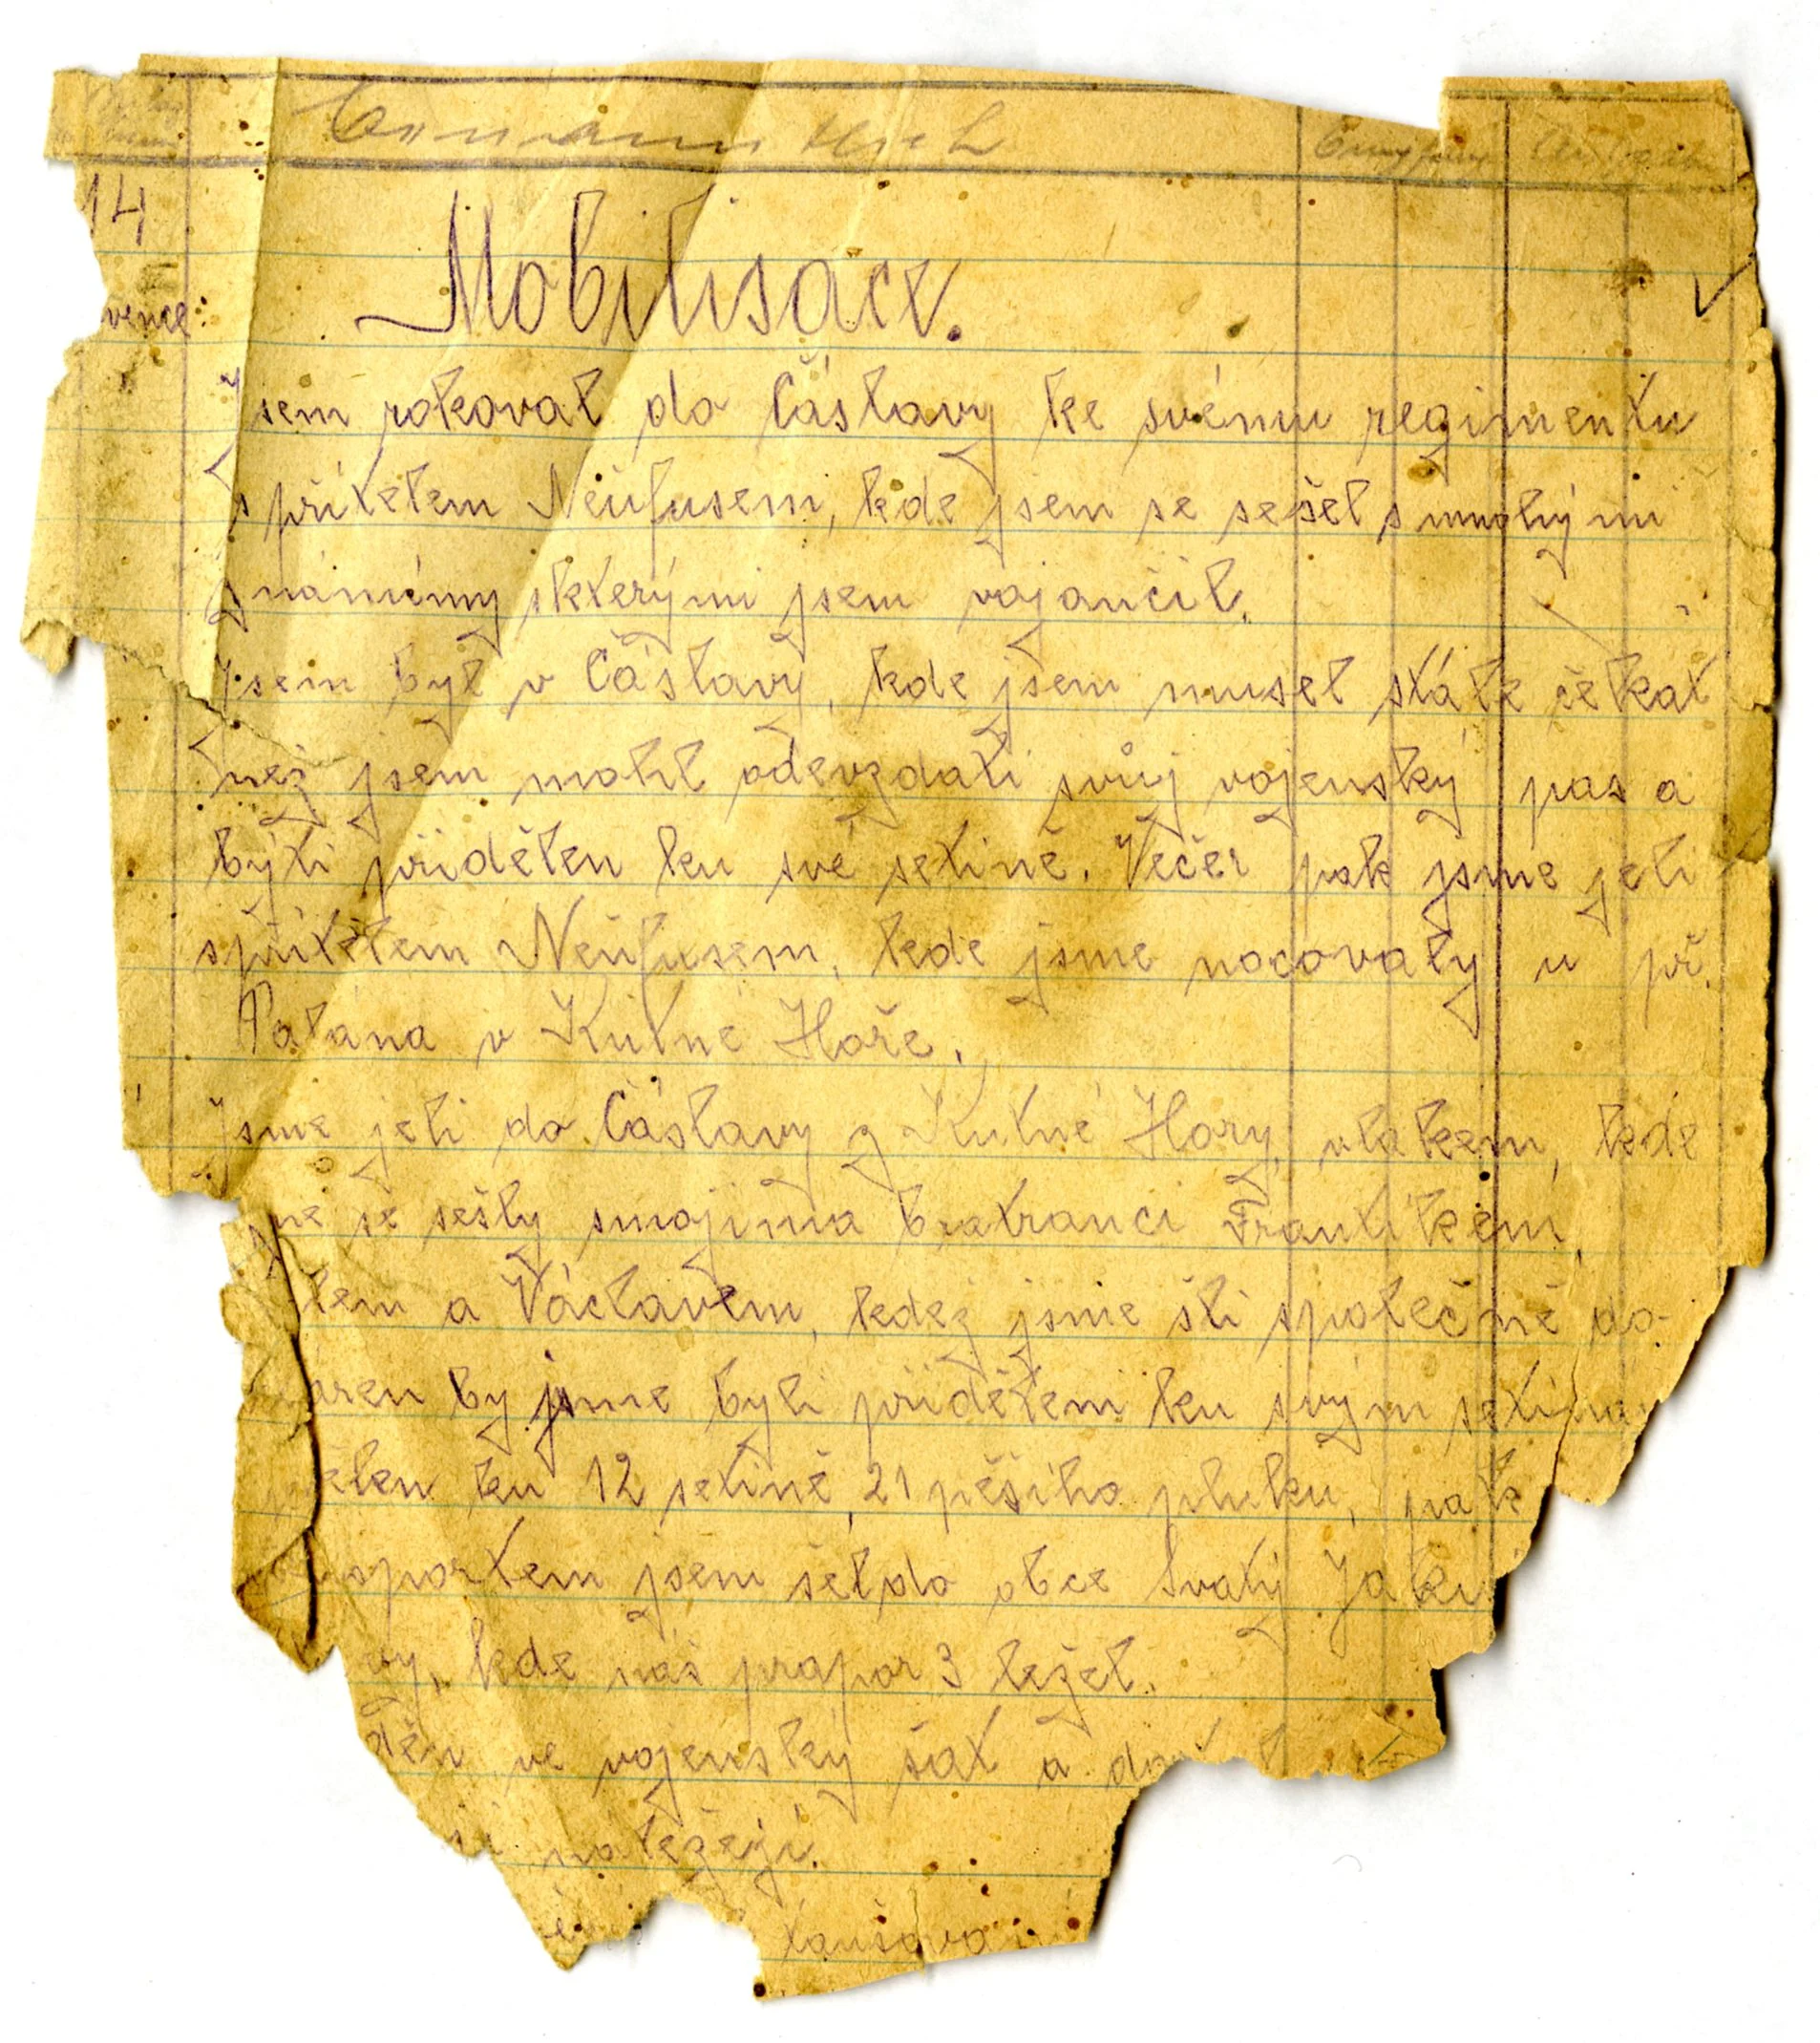 14
Mobilisace.
vence:
Jsem rokoval do Čáslavy ke svému regimentu
s přítelem Neufusem, kde jsem se sešel s mnohými
známémy skterými jsem vojančil.
Jsem byl v Čáslavy, kde jsem musel stále čekat
než jsem mohl odevzdati svůj vojenský pas a
býti přidělen ku své setině. Večer pak jsme jeli
spřítelem Neufusem, kde jsme nocovaly u př.
Palána v Kutné Hoře.
Jsme jeli do Čáslavy z Kutné Hory, vlakem, kde
me se sešly smojíma bratranci Frantíkem,
lem a Václavem, kdež jsme šli společně do
áren by jsme byli přiděleni ku svým setina
ělen ku 12 setině, 21 pěšího pluku, pak
sportem jsem šel do obce Svatý Jaki
vy, kde náš prapor 3 ležel.
děn ve vojenský šat a
náležejí.